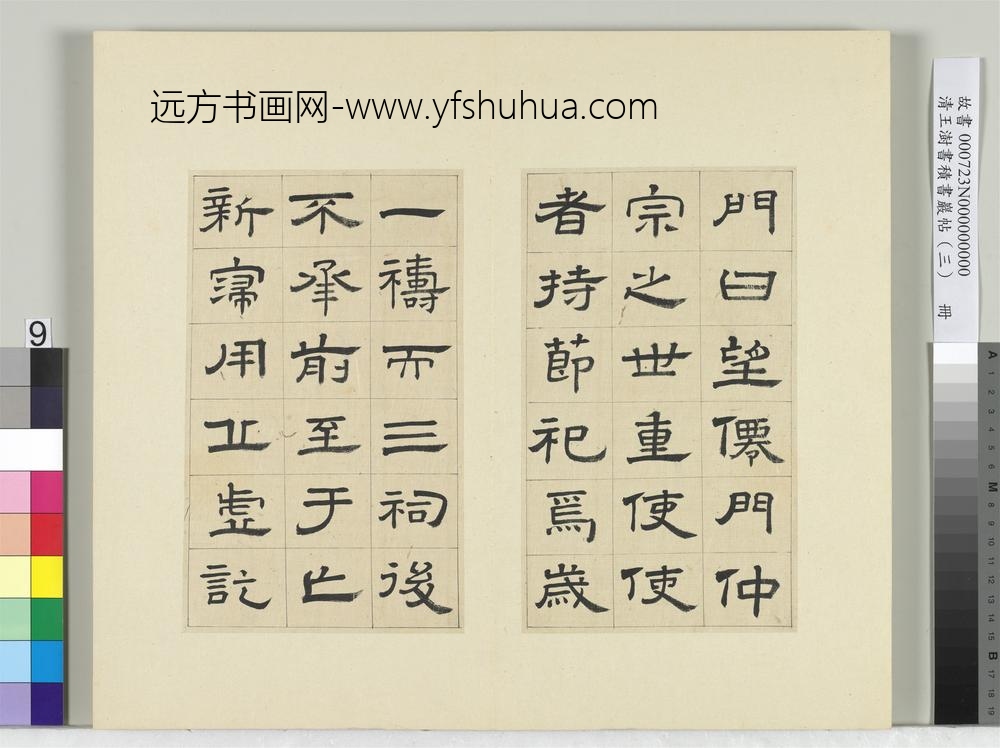 远方书画网-www.yfshuhua.com
門曰望僊門仲
宗之世重使使
者持節祀焉歲
一禱而三祠後
不承前至于亡
新寖用丘虛訖
故書000723N000000000
清王澍書積書巖帖(三) 冊
9
A 1 2 3 4 5 6 M 8 9 10 11 12 13 14 15 B 17 18 19